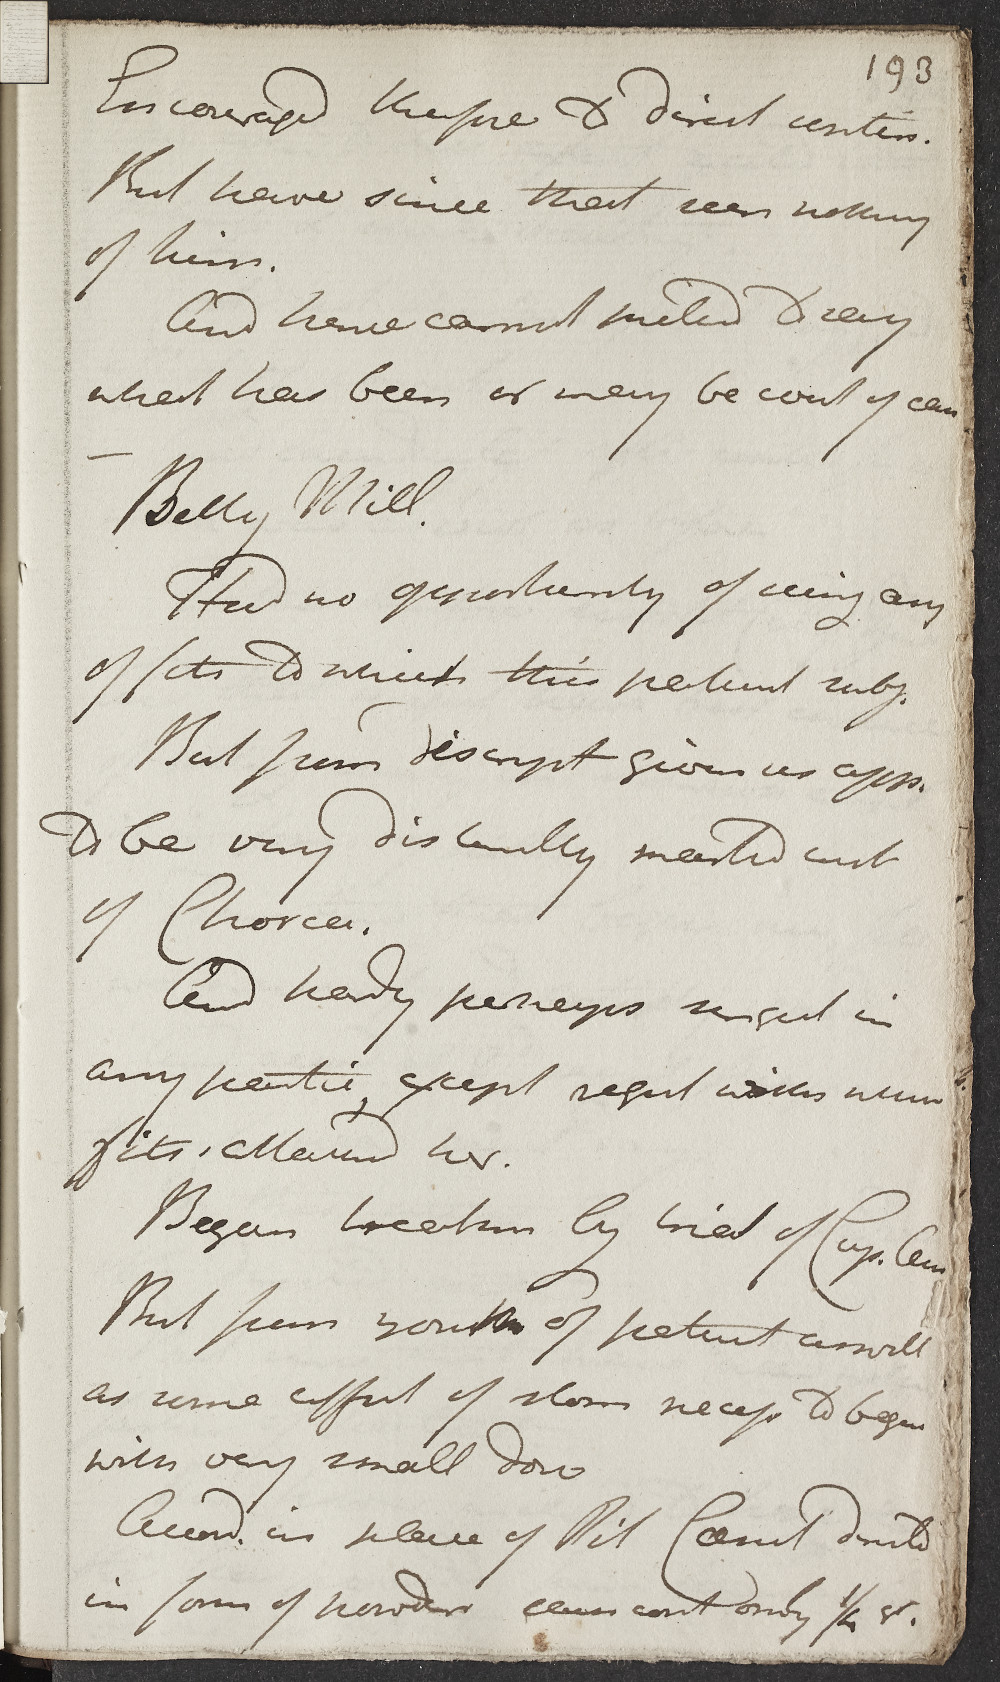 193
Encouraged therfore to direct contin.
But have since that seen nothing
of him.
And hence cannot pretend to say
what has been or may be cont of case
Betty Mill.
Had no opportunity of seeing any
of fits to which this patient subj.
But from descript given us app.
to be very distinctly marked
of Chorea.
And hardly perhaps in
any partic, except regul with
fits attacked her.
Began treatmn by trial of Cup. Am
But from youth of patient as well
as some affect of stom necess to begin
with very small dose
Accord. in place of Pil Cærul directed
in form of powder each cont only 1/4 gr.